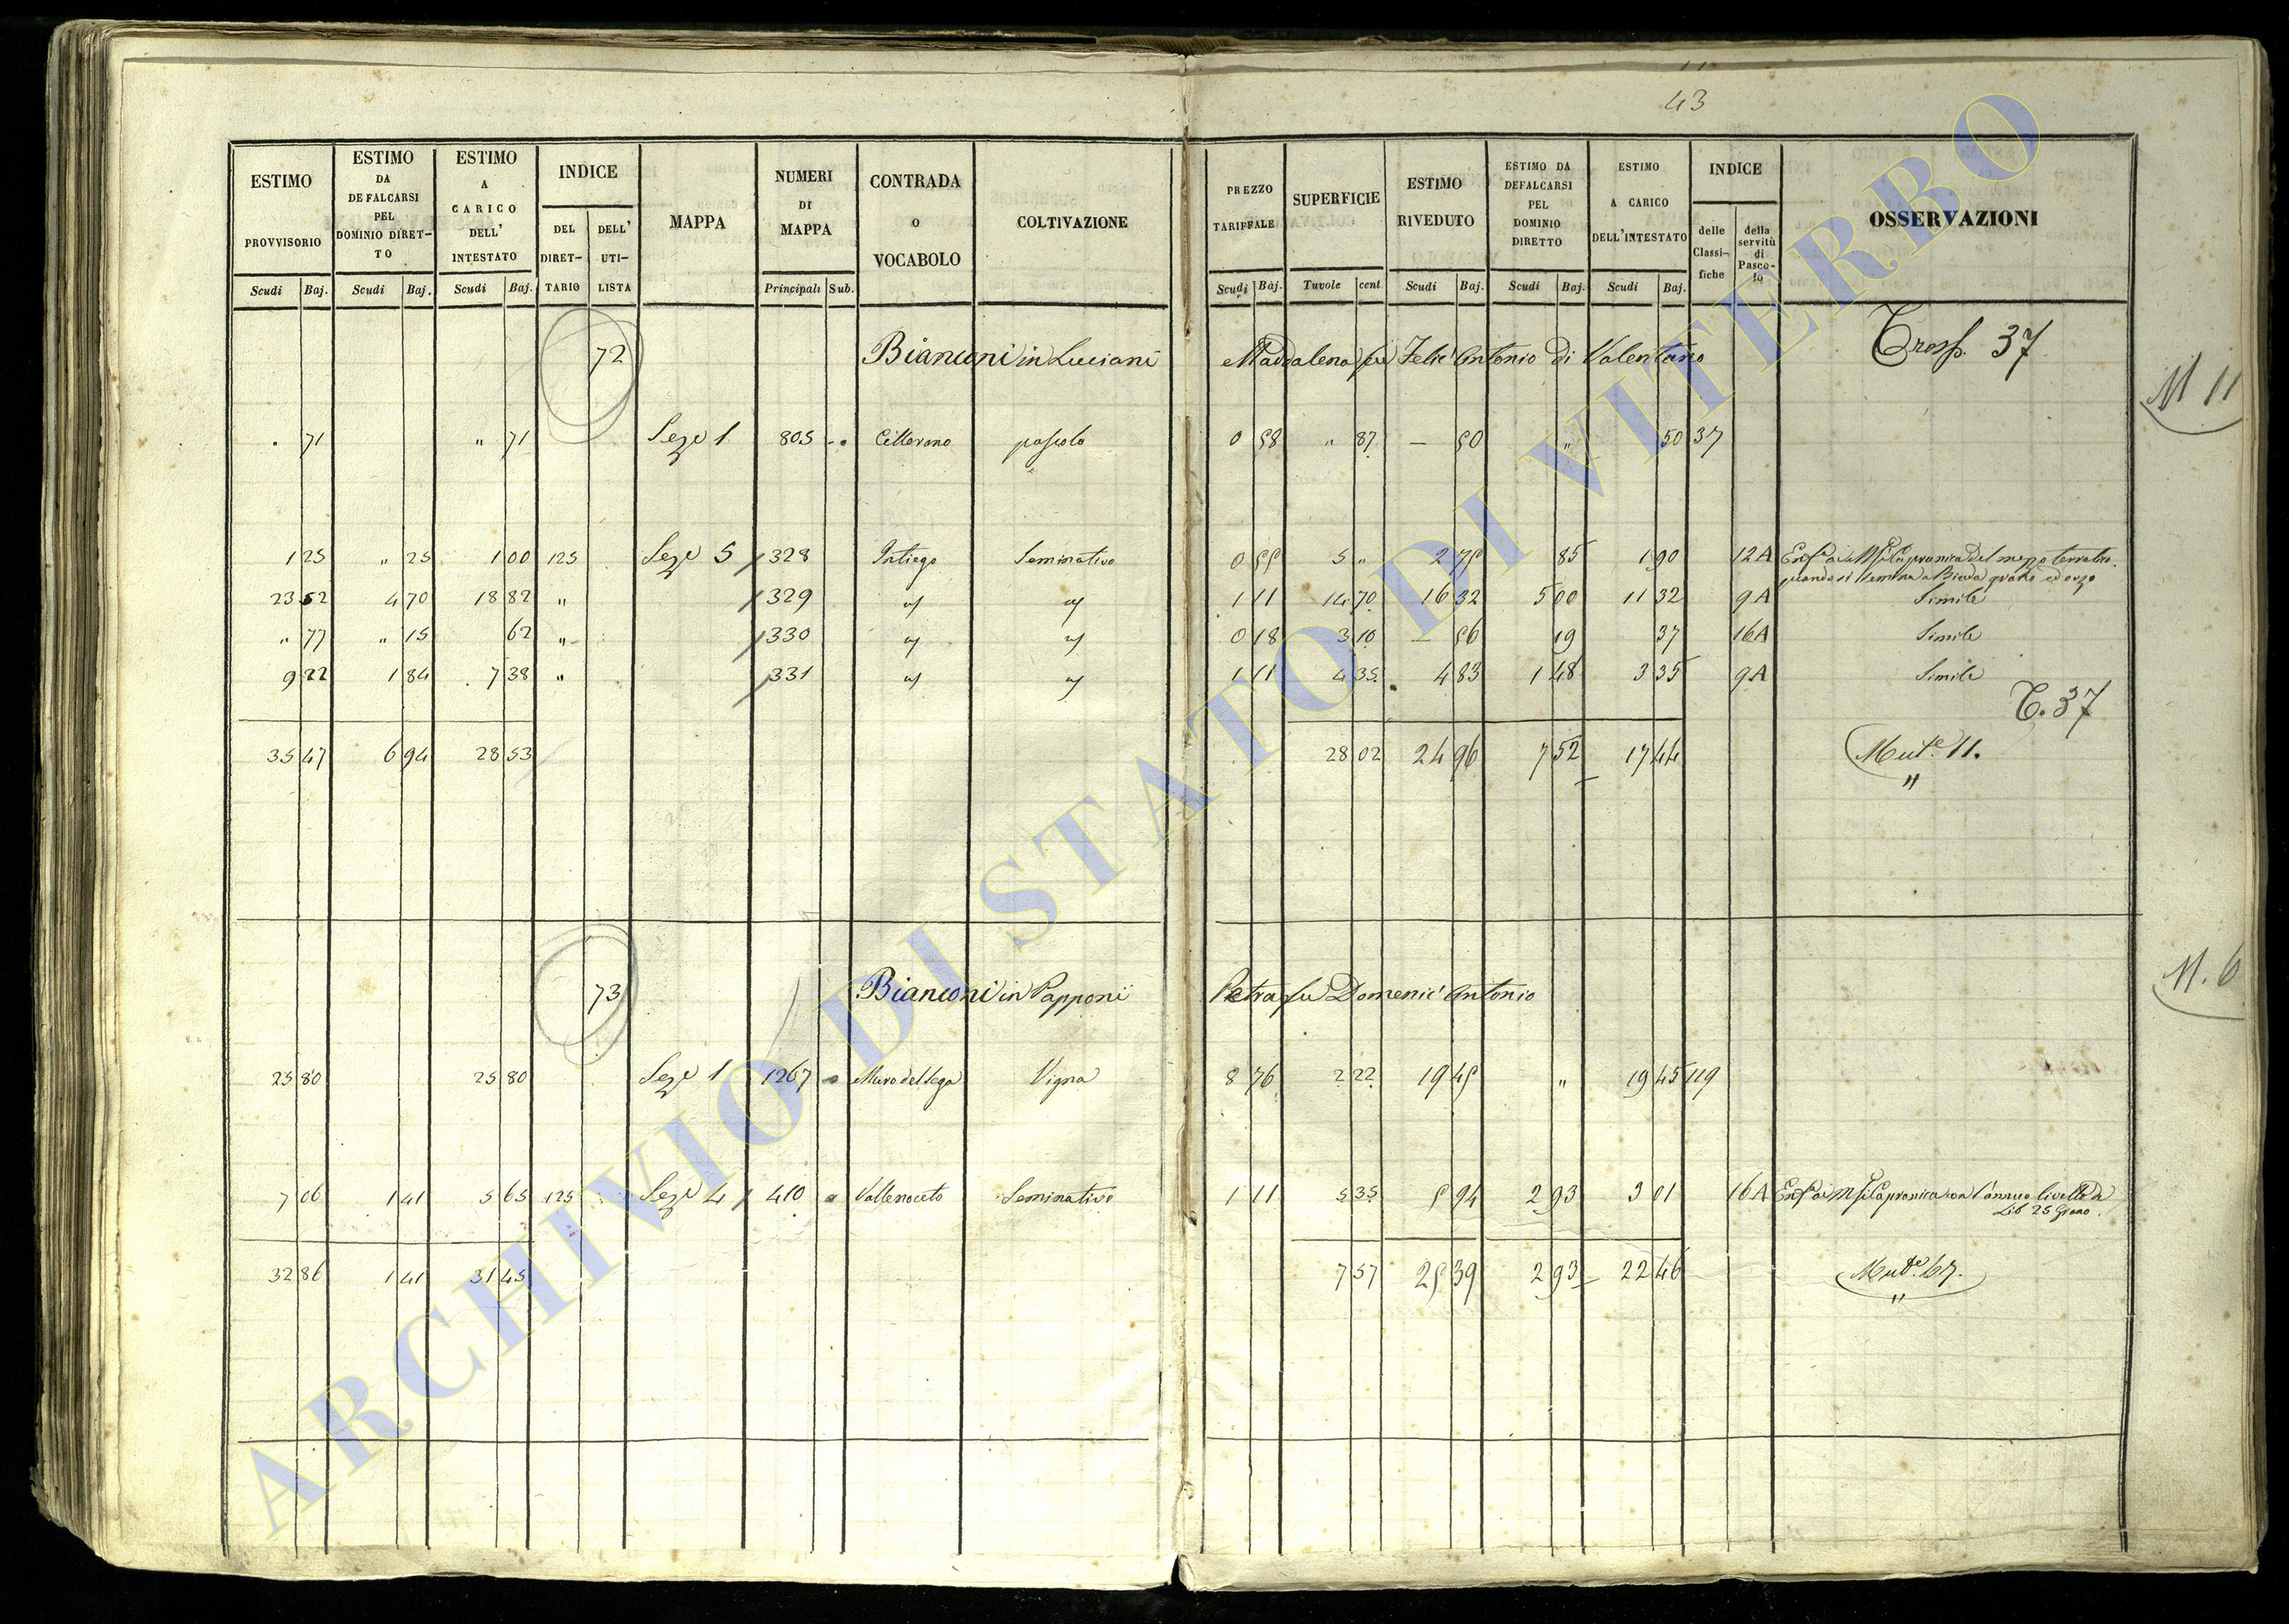 43
ESTIMO PROVVISORIO Scudi Baj.
ESTIMO DA DEFALCARSI PEL DOMINIO DIRET-TO Scudi Baj.
ESTIMO A CARICO DELL' INTESTATO Scudi Baj.
INDICE DEL DIRET-TARIO DELL' UTI-LISTA
MAPPA
NUMERI DI MAPPA Principali Sub.
CONTRADA o VOCABOLO
COLTIVAZIONE
PREZZO TARIFFALE Scudi Baj.
SUPERFICIE Tavole cent
ESTIMO RIVEDUTO Scudi Baj.
ESTIMO DA DEFALCARSI PEL DOMINIO DIRETTO Scudi Baj.
ESTIMO A CARICO DELL'INTESTATO Scudi Baj.
INDICE delle Classi-fiche della servitù di Pasco-lo
OSSERVAZIONI
72 Bianconi in Luciani Maddalena fu Felic' Antonio di Valentano Trasp. 37
M 11
. 71 " 71 Seze 1 805 Cellerano pascolo 0 58 " 87 — 50 " 50 37
1 25 " 25 1 00 125 Seze 5 328 Intiego Seminativo 0 55 5 " 2 75 85 1 90 12A
quando si semina a Biada grano ed orzo
23 52 4 70 18 82 " 329 1 11 14 70 16 32 5 00 11 32 9A Simile
" 77 " 15 62 " 330 0 18 3 10 — 56 19 37 16A Simile
9 22 1 84 7 38 " 331 1 11 4 35 4 83 1 48 3 35 9A Simile
T. 37
35 47 6 94 28 53 28 02 24 96 7 52 17 44 Mut.e 11.
"
73 Bianconi in Papponi Petra fu Domenic' Antonio
M. 6
25 80 25 80 Seze 1 1267 Muro del Lega Vigna 8 76 2 22 19 45 " 19 45 119
7 06 1 41 5 65 125 Seze 4 410 Vallenoceto Seminativo 1 11 5 35 5 94 2 93 3 01 16A con l'annuo livello di
Lib 25 Grano.
32 86 1 41 31 45 7 57 25 39 2 93 22 46 Mut.e 67.
"
ARCHIVIO DI STATO DI VITERBO